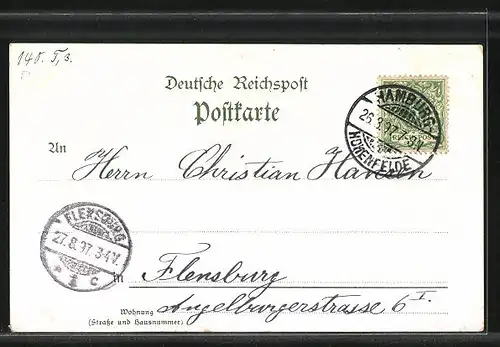 Deutsche Reichspost
Postkarte
HAMBURG
26.8.97.
HOHENFELDE
An Herrn Christian Hansen
FLENSBURG
27.8.97. 3-4V.
in Flensburg
Wohnung Angelburgerstrasse 6 I.
(Straße und Hausnummer)